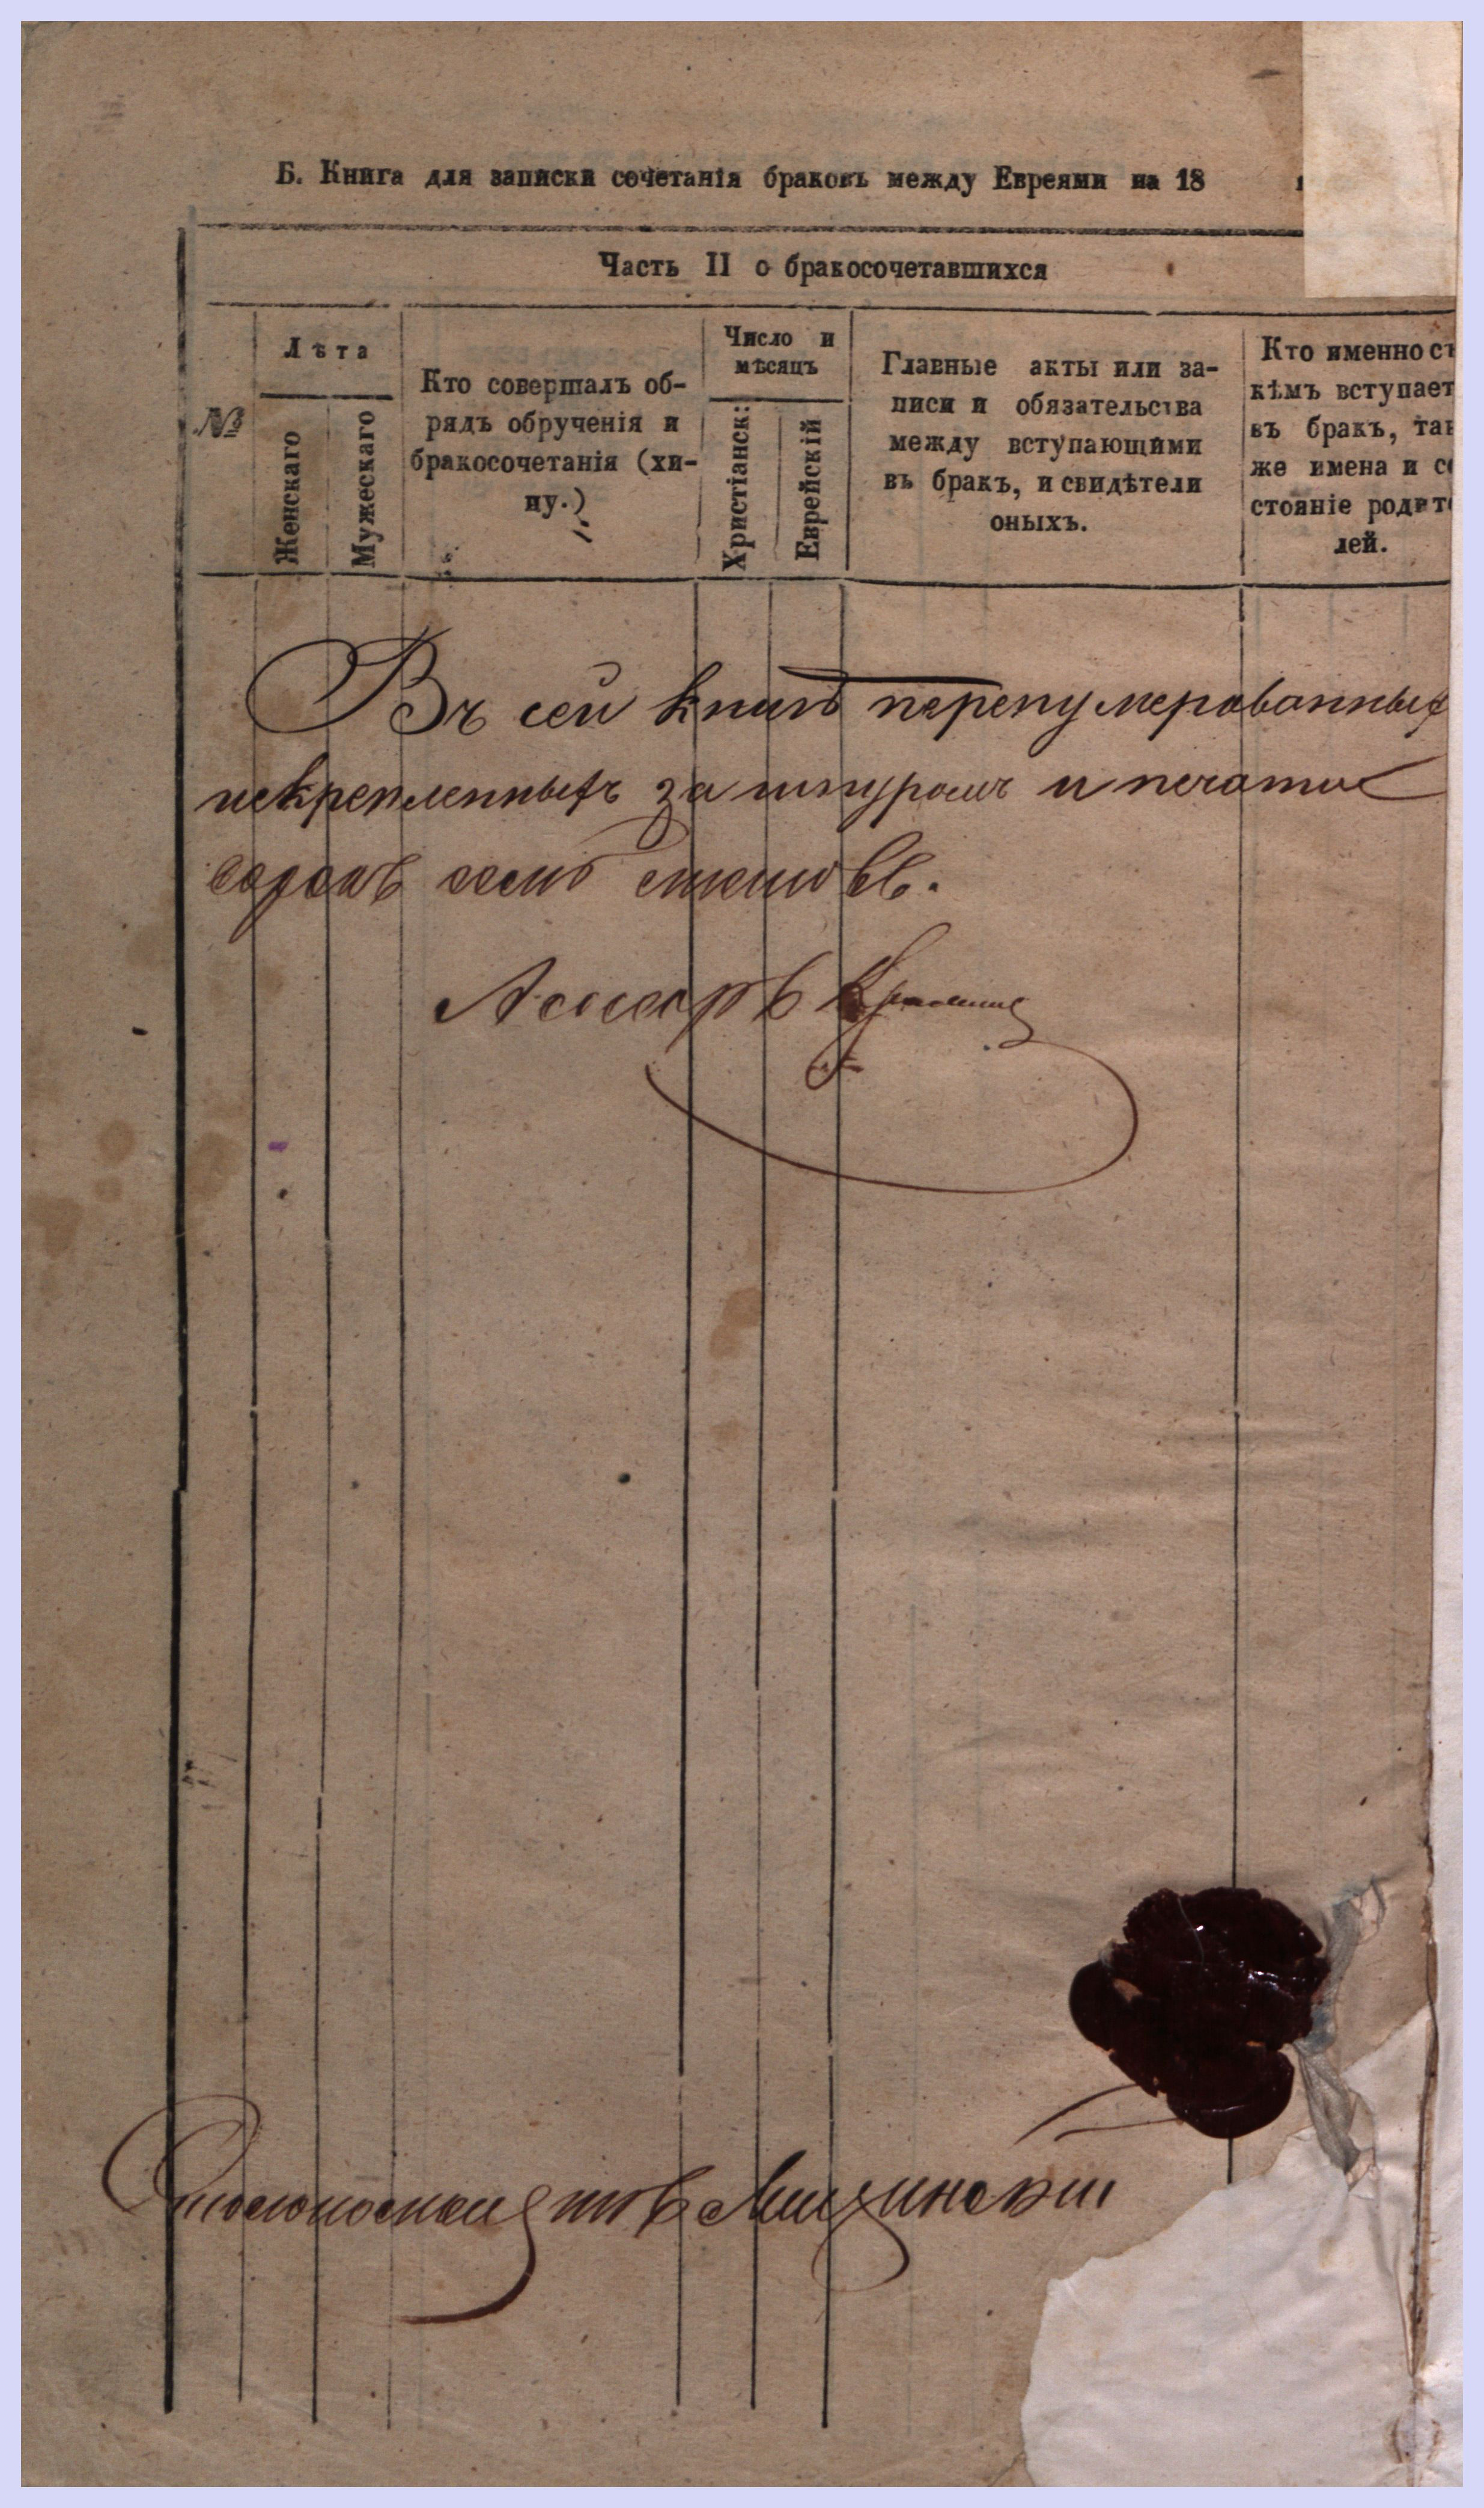 Б. Книга для записки сочетанія браковъ между Евреями на 18
Часть II о бракосочетавшихся
№
Лѣта
Женскаго
Мужескаго
Кто совершалъ об-
рядъ обрученія и
бракосочетанія (хи-
пу.)
Число и
мѣсяцъ
Христіанск:
Еврейскій
Главные акты или за-
писи и обязательства
между вступающими
въ бракъ, и свидѣтели
оныхъ.
Кто именно съ
кѣмъ вступает
въ бракъ, так
же имена и со
стояніе родите
лей.
Въ сей книгѣ перенумерованныхъ
искрепленныхъ за шнуромъ и печатью
сорокъ семь листовъ.
Ассесоръ
Столоначальникъ